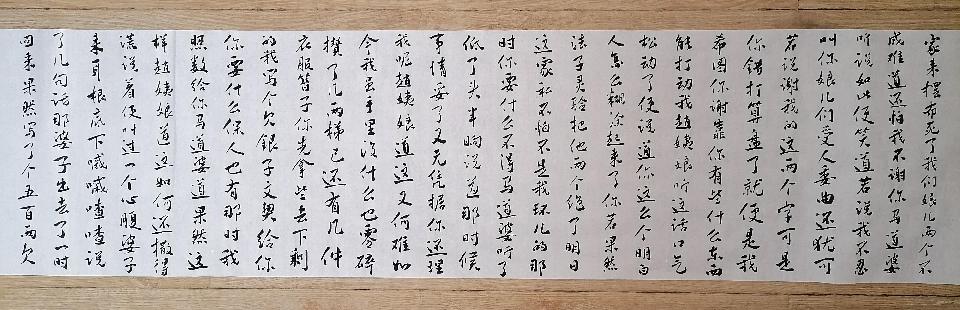 家来摆布死了我们娘儿两个不
成难道还怕我不谢你马道婆
听说如此便笑道若说我不忍
叫你娘儿们受人委曲还犹可
若说谢我的这两个字可是
你错打算盘了就便是我
希图你谢靠你有些什么东西
能打动我赵姨娘听这话口气
松动了便说道你这么个明白
人怎么糊涂起来了你若果然
法子灵验把他两个绝了明日
这家私不怕不是我环儿的那
时你要什么不得马道婆听了
低了头半晌说道那时候
事情妥了又无凭据你还理
我呢赵姨娘道这又何难如
今我虽手里没什么也零碎
攒了几两梯己还有几件
衣服簪子你先拿些去下剩
的我写个欠银子文契给你
你要什么保人也有那时我
照数给你马道婆道果然这
样赵姨娘道这如何还撒得
谎说着便叫过一个心腹婆子
来耳根底下嘁嘁喳喳说
了几句话那婆子出去了一时
回来果然写了个五百两欠